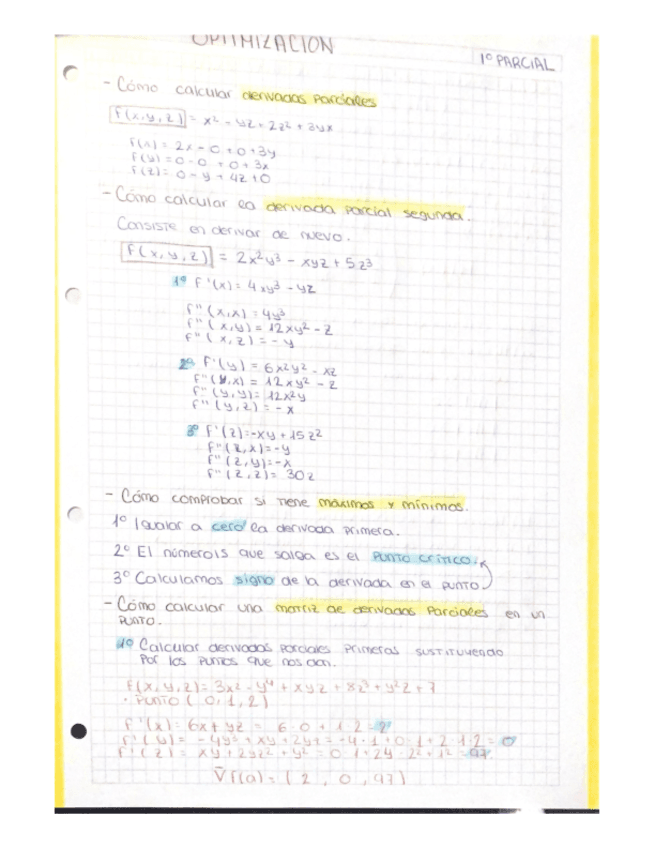 OPTIMIZACION
1º PARCIAL
- Cómo calcular derivadas parciales
f(x,y,z) = x² - yz + 2z² + 3yx
f(x) = 2x - 0 + 0 + 3y
f(y) = 0 - 0 + 0 + 3x
f(z) = 0 - y + 4z + 0
- Cómo calcular la derivada parcial segunda.
Consiste en derivar de nuevo.
f(x, y, z) = 2x²y³ - xyz + 5z³
1º f'(x) = 4xy³ - yz
f''(x,x) = 4y³
f''(x,y) = 12xy² - z
f''(x,z) = - y
2º f'(y) = 6x²y² - xz
f''(y,x) = 12xy² - z
f''(y,y) = 12x²y
f''(y,z) = - x
3º f'(z) = -xy + 15z²
f''(z,x) = -y
f''(z,y) = -x
f''(z,z) = 30z
- Cómo comprobar si tiene máximos y mínimos.
1º Igualar a cero la derivada primera.
2º El número/s que salga es el punto crítico.
3º Calculamos signo de la derivada en el punto
- Cómo calcular una matriz de derivadas parciales en un
punto.
1º Calcular derivadas parciales primeras sustituyendo
por los puntos que nos dan.
f(x, y, z) = 3x² - y⁴ + xyz + 8z³ + y²z + 7
· PUNTO (0, 1, 2)
f'(x) = 6x + yz = 6·0 + 1·2 = 2
f'(y) = -4y³ + xy + 2yz = -4·1 + 0·1 + 2·1·2 = 0
f'(z) = xy + 24z² + y² = 0·1 + 24·2² + 1² = 97
∇f(a) = (2, 0, 97)